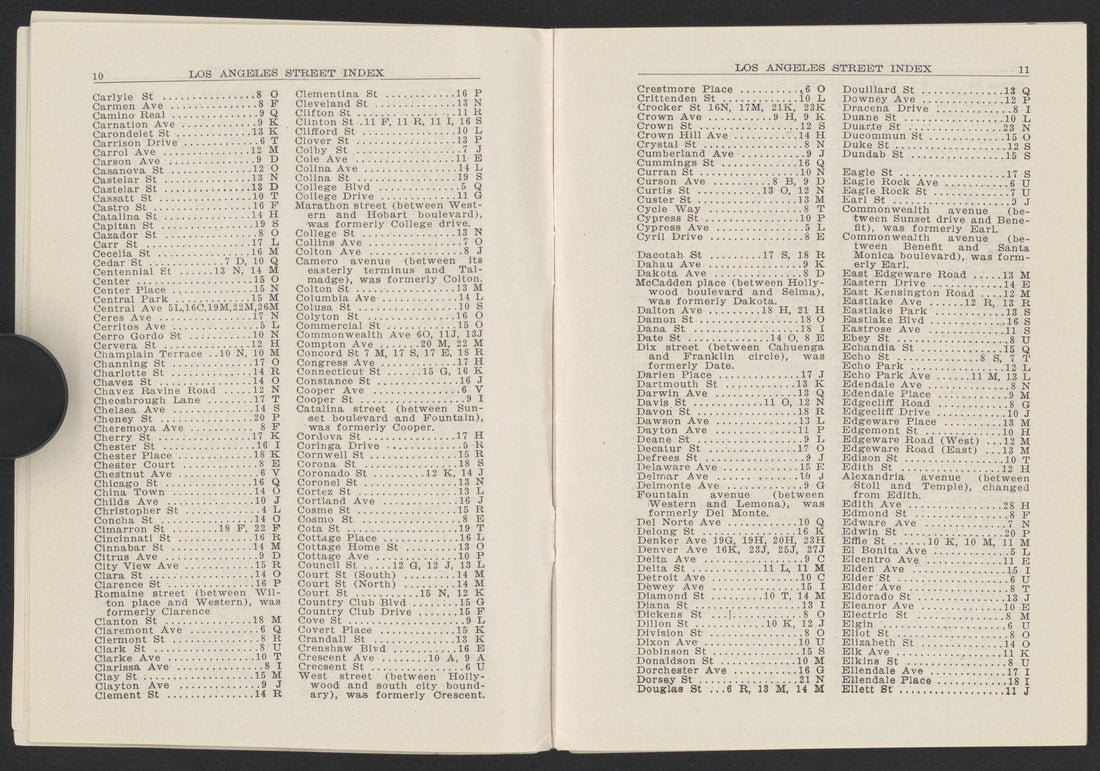 10
LOS ANGELES STREET INDEX
Carlyle St ................8 O
Carmen Ave ................8 F
Camino Real ...............9 Q
Carnation Ave .............9 K
Carondelet St ............13 K
Carrison Drive ............6 T
Carrol Ave ...............12 M
Carson Ave ................9 D
Casanova St ..............12 O
Castelar St ..............13 N
Castelar St ..............13 D
Cassatt St ...............10 T
Castro St ................16 F
Catalina St ..............14 H
Capitan St ...............19 S
Cazador St ................8 O
Carr St ..................17 L
Cecelia St ...............16 M
Cedar St ............7 D, 10 Q
Centennial St ......13 N, 14 M
Center ...................15 O
Center Place .............15 N
Central Park .............15 M
Central Ave 5L,16C,19M,22M,26M
Ceres Ave ................17 N
Cerritos Ave ..............5 L
Cerro Gordo St ...........10 N
Cervera St ...............12 H
Champlain Terrace ..10 N, 10 M
Channing St ..............17 O
Charlotte St .............14 R
Chavez St ................14 O
Chavez Ravine Road .......12 N
Cheosbrough Lane .........17 T
Chelsea Ave ..............14 S
Cheney St ................20 P
Cheremoya Ave .............8 F
Cherry St ................17 K
Chester St ...............16 I
Chester Place ............18 K
Chester Court .............8 E
Chestnut Ave ..............6 V
Chicago St ...............16 Q
China Town ...............14 O
Childs Ave ...............10 J
Christopher St ............4 L
Concha St ................14 O
Cimarron St ........18 F, 22 F
Cincinnati St ............16 R
Cinnabar St ..............14 M
Citrus Ave ................9 D
City View Ave ............15 R
Clara St .................14 O
Clarence St ..............16 P
Romaine street (between Wil-
ton place and Western), was
formerly Clarence
Clanton St ...............18 M
Claremont Ave .............6 Q
Clermont St ...............8 R
Clark St ..................8 U
Clarke Ave ...............10 T
Clarissa Ave ..............8 I
Clay St ..................15 M
Clayton Ave ...............9 J
Clement St ...............14 R
Clementina St ............16 P
Cleveland St .............13 N
Clifton St ...............11 R
Clinton St .11 F, 11 R, 11 I, 16 S
Clifford St ..............10 L
Clover St ................13 P
Colby St ..................7 J
Cole Ave .................11 E
Colina Ave ...............14 L
Colina St ................19 S
College Blvd ..............5 Q
College Drive ............11 G
Marathon street (between West-
ern and Hobart boulevard),
was formerly College drive.
College St ...............13 N
Collins Ave ...............7 O
Colton Ave ................8 J
Camero avenue (between its
easterly terminus and Tal-
madge), was formerly Colton.
Colton St ................13 M
Columbia Ave .............14 L
Colusa St ................10 S
Colyton St ...............16 O
Commercial St ............15 O
Commonwealth Ave 6O, 11J, 13J
Compton Ave ........20 M, 22 M
Concord St 7 M, 17 S, 17 E, 18 R
Congress Ave .............17 H
Connecticut St .....15 G, 16 K
Constance St .............16 J
Cooper Ave ................6 V
Cooper St .................9 I
Catalina street (between Sun-
set boulevard and Fountain),
was formerly Cooper.
Cordova St ...............17 H
Coringa Drive .............5 R
Cornwell St ..............15 R
Corona St ................18 S
Coronado St ........12 K, 14 J
Coronel St ...............13 N
Cortez St ................13 L
Cortland Ave .............16 J
Cosme St .................15 R
Cosmo St ..................8 E
Cota St ..................19 T
Cottage Place ............16 L
Cottage Home St ..........13 O
Cottage Ave ..............10 P
Council St .....12 G, 12 J, 13 L
Court St (South) .........14 M
Court St (North) .........14 M
Court St ...........15 N, 12 K
Country Club Blvd ........15 G
Country Club Drive .......15 F
Cove St ...................9 L
Covert Place .............15 K
Crandall St ..............13 K
Crenshaw Blvd ............16 E
Crescent Ave ........10 A, 9 A
Crecsent St ...............6 U
West street (between Holly-
wood and south city bound-
ary), was formerly Crescent.
LOS ANGELES STREET INDEX
11
Crestmore Place ...........6 O
Crittenden St ............10 L
Crocker St 16N, 17M, 21K, 23K
Crown Ave ............9 H, 9 K
Crown St .................12 S
Crown Hill Ave ...........14 H
Crystal St ................8 N
Cumberland Ave ............9 J
Cummings St ..............16 Q
Curran St ................10 N
Curson Ave ...........8 B, 9 D
Curtis St ..........13 O, 12 N
Custer St ................13 M
Cycle Way .................8 T
Cypress St ...............10 P
Cypress Ave ...............5 L
Cyril Drive ...............8 E
Dacotah St .........17 S, 18 R
Dahau Ave .................9 K
Dakota Ave ................8 D
McCadden place (between Holly-
wood boulevard and Selma),
was formerly Dakota.
Dalton Ave .........18 H, 21 H
Damon St .................18 O
Dana St ..................18 I
Date St .............14 O, 8 E
Dix street (between Cahuenga
and Franklin circle), was
formerly Date.
Darien Place .............17 J
Dartmouth St .............13 K
Darwin Ave ...............13 Q
Davis St ...........11 O, 12 N
Davon St .................18 R
Dawson Ave ...............13 L
Dayton Ave ...............11 P
Deane St ..................9 L
Decatur St ...............17 O
Defrees St ................9 J
Delaware Ave .............15 E
Delmar Ave ...............10 J
Delmonte Ave ..............9 G
Fountain avenue (between
Western and Lemona), was
formerly Del Monte.
Del Norte Ave ............10 Q
Delong St ................16 K
Denker Ave 19G, 19H, 20H, 23H
Denver Ave 16K, 23J, 25J, 27J
Delta Ave .................9 C
Delta St ...........11 L, 11 M
Detroit Ave ..............10 C
Dewey Ave ................15 I
Diamond St .........10 T, 14 M
Diana St .................13 I
Dickens St ................8 O
Dillon St ..........10 K, 12 J
Division St ...............8 O
Dixon Ave ................10 U
Dobinson St ..............15 S
Donaldson St .............10 M
Dorchester Ave ...........16 G
Dorsey St ................21 N
Douglas St ...6 R, 13 M, 14 M
Douillard St .............13 Q
Downey Ave ...............12 P
Dracena Drive .............8 I
Duane St .................10 L
Duarte St ................23 N
Ducommun St ..............15 O
Duke St ..................12 S
Dundab St ................15 S
Eagle St .................17 S
Eagle Rock Ave ............6 U
Eagle Rock St .............7 U
Earl St ...................9 J
Commonwealth avenue (be-
tween Sunset drive and Bene-
fit), was formerly Earl.
Commonwealth avenue (be-
tween Benefit and Santa
Monica boulevard), was form-
erly Earl.
East Edgeware Road .......13 M
Eastern Drive ............14 E
East Kensington Road .....12 M
Eastlake Ave .......12 R, 13 R
Eastlake Park ............13 S
Eastlake Blvd ............16 S
Eastrose Ave .............11 S
Ebey St ...................8 U
Echandia St ..............15 Q
Echo St ..............8 S, 7 T
Echo Park ................12 L
Echo Park Ave ......11 M, 13 L
Edendale Ave ..............8 N
Edendale Place ............9 M
Edgecliff Road ............8 G
Edgecliff Drive ..........10 J
Edgeware Place ...........13 M
Edgemont St ..............10 H
Edgeware Road (West) ....12 M
Edgeware Road (East) ....13 M
Edison St ................10 T
Edith St .................12 H
Alexandria avenue (between
Stoll and Temple), changed
from Edith.
Edith Ave ................28 H
Edmond St .................8 F
Edware Ave ................7 N
Edwin St .................20 P
Effie St ......10 K, 10 M, 11 M
El Bonita Ave .............5 L
Elcentro Ave .............11 E
Elden Ave ................15 I
Elder St ..................6 U
Elder Ave .................8 T
Eldorado St ..............13 J
Eleanor Ave ..............10 E
Electric St ...............8 M
Elgin .....................6 U
Eliot St ..................8 O
Elizabeth St .............14 O
Elk Ave ..................11 K
Elkins St .................8 U
Ellendale Ave ............17 I
Ellendale Place ..........18 I
Ellett St ................11 J